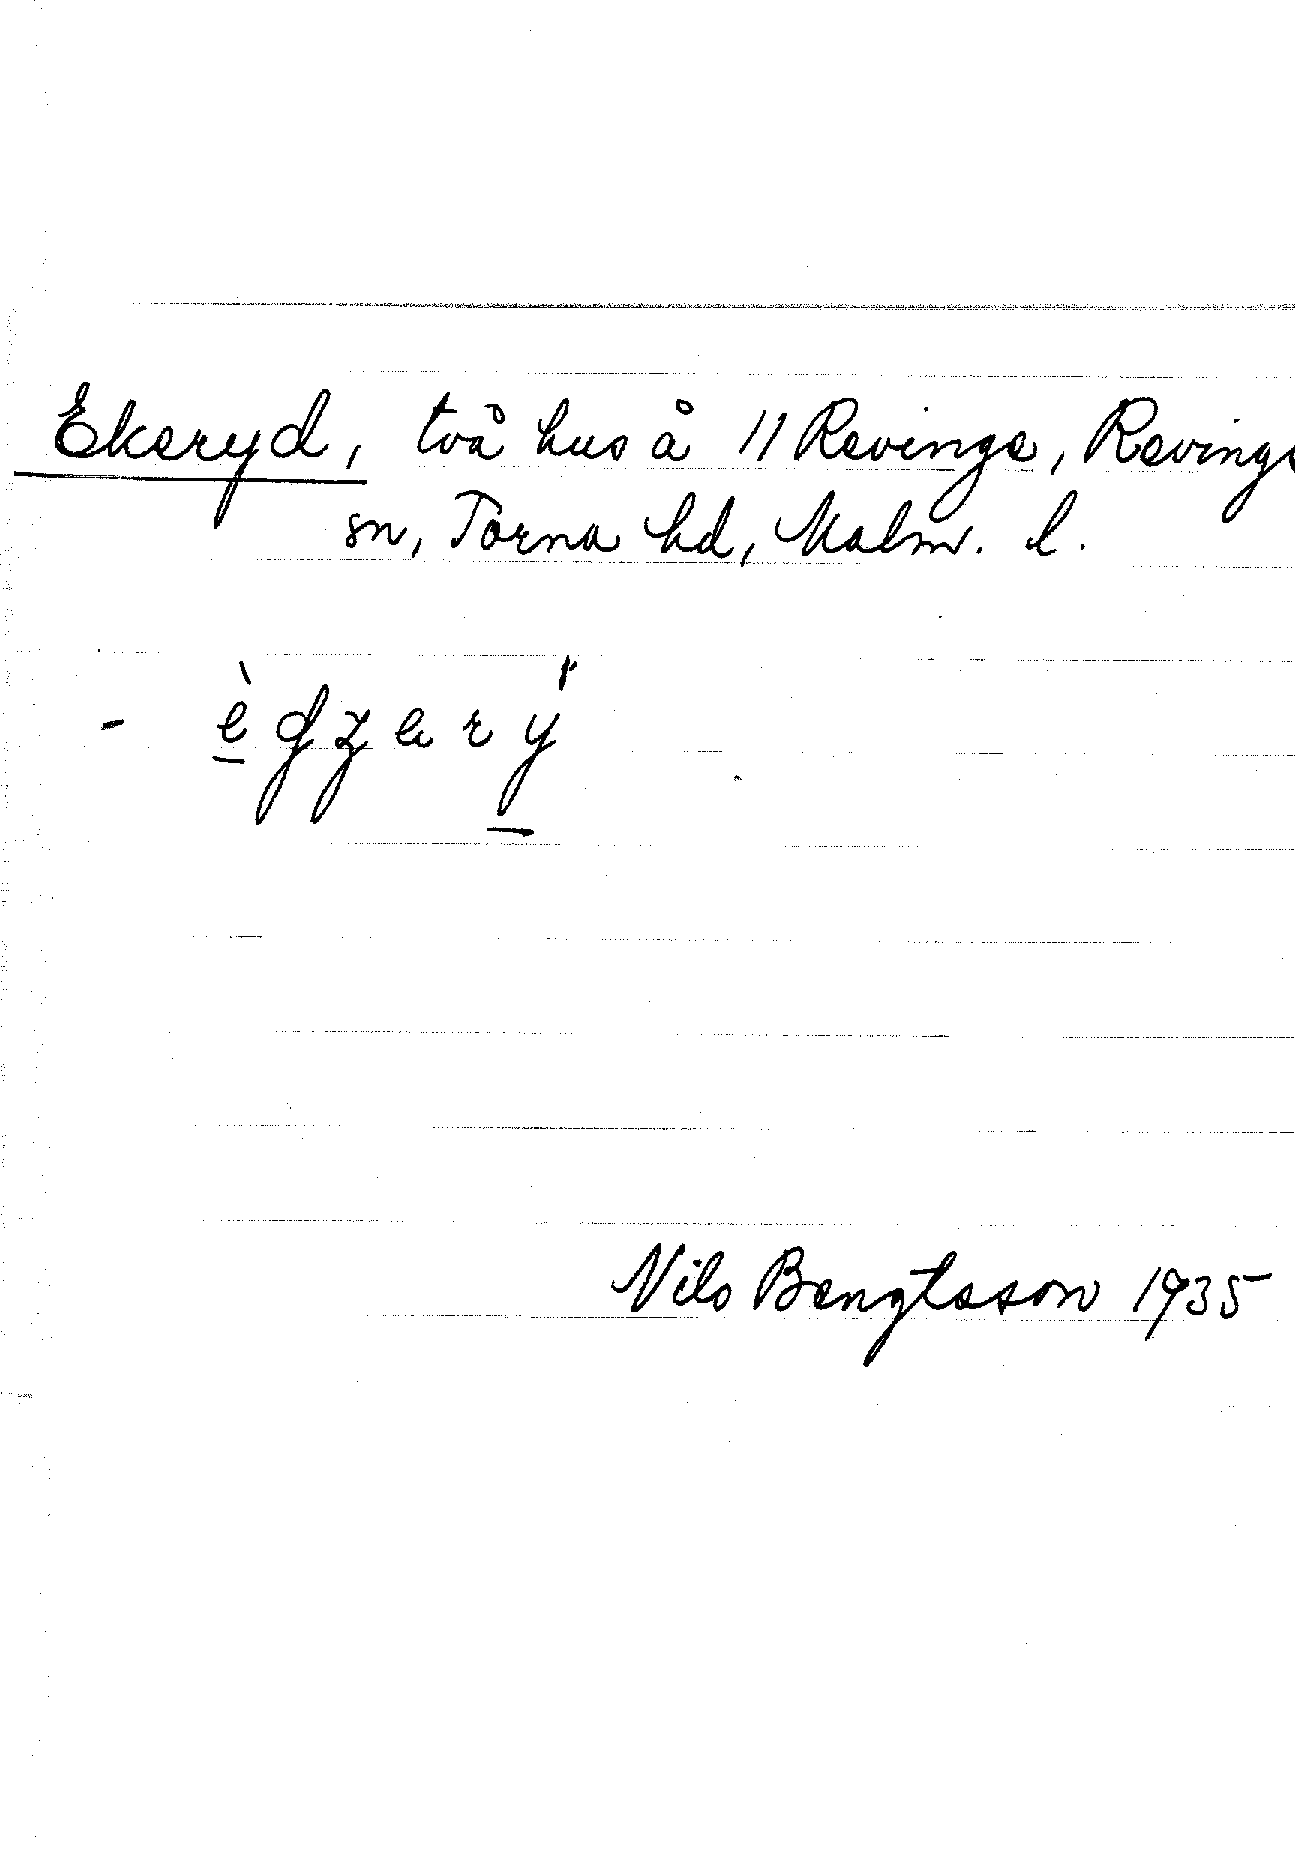 Ekeryd, två hus å 11 Revinge, Revinge
sn, Torna hd, Malm. l.
- ègzarý
Nils Bengtsson 1935